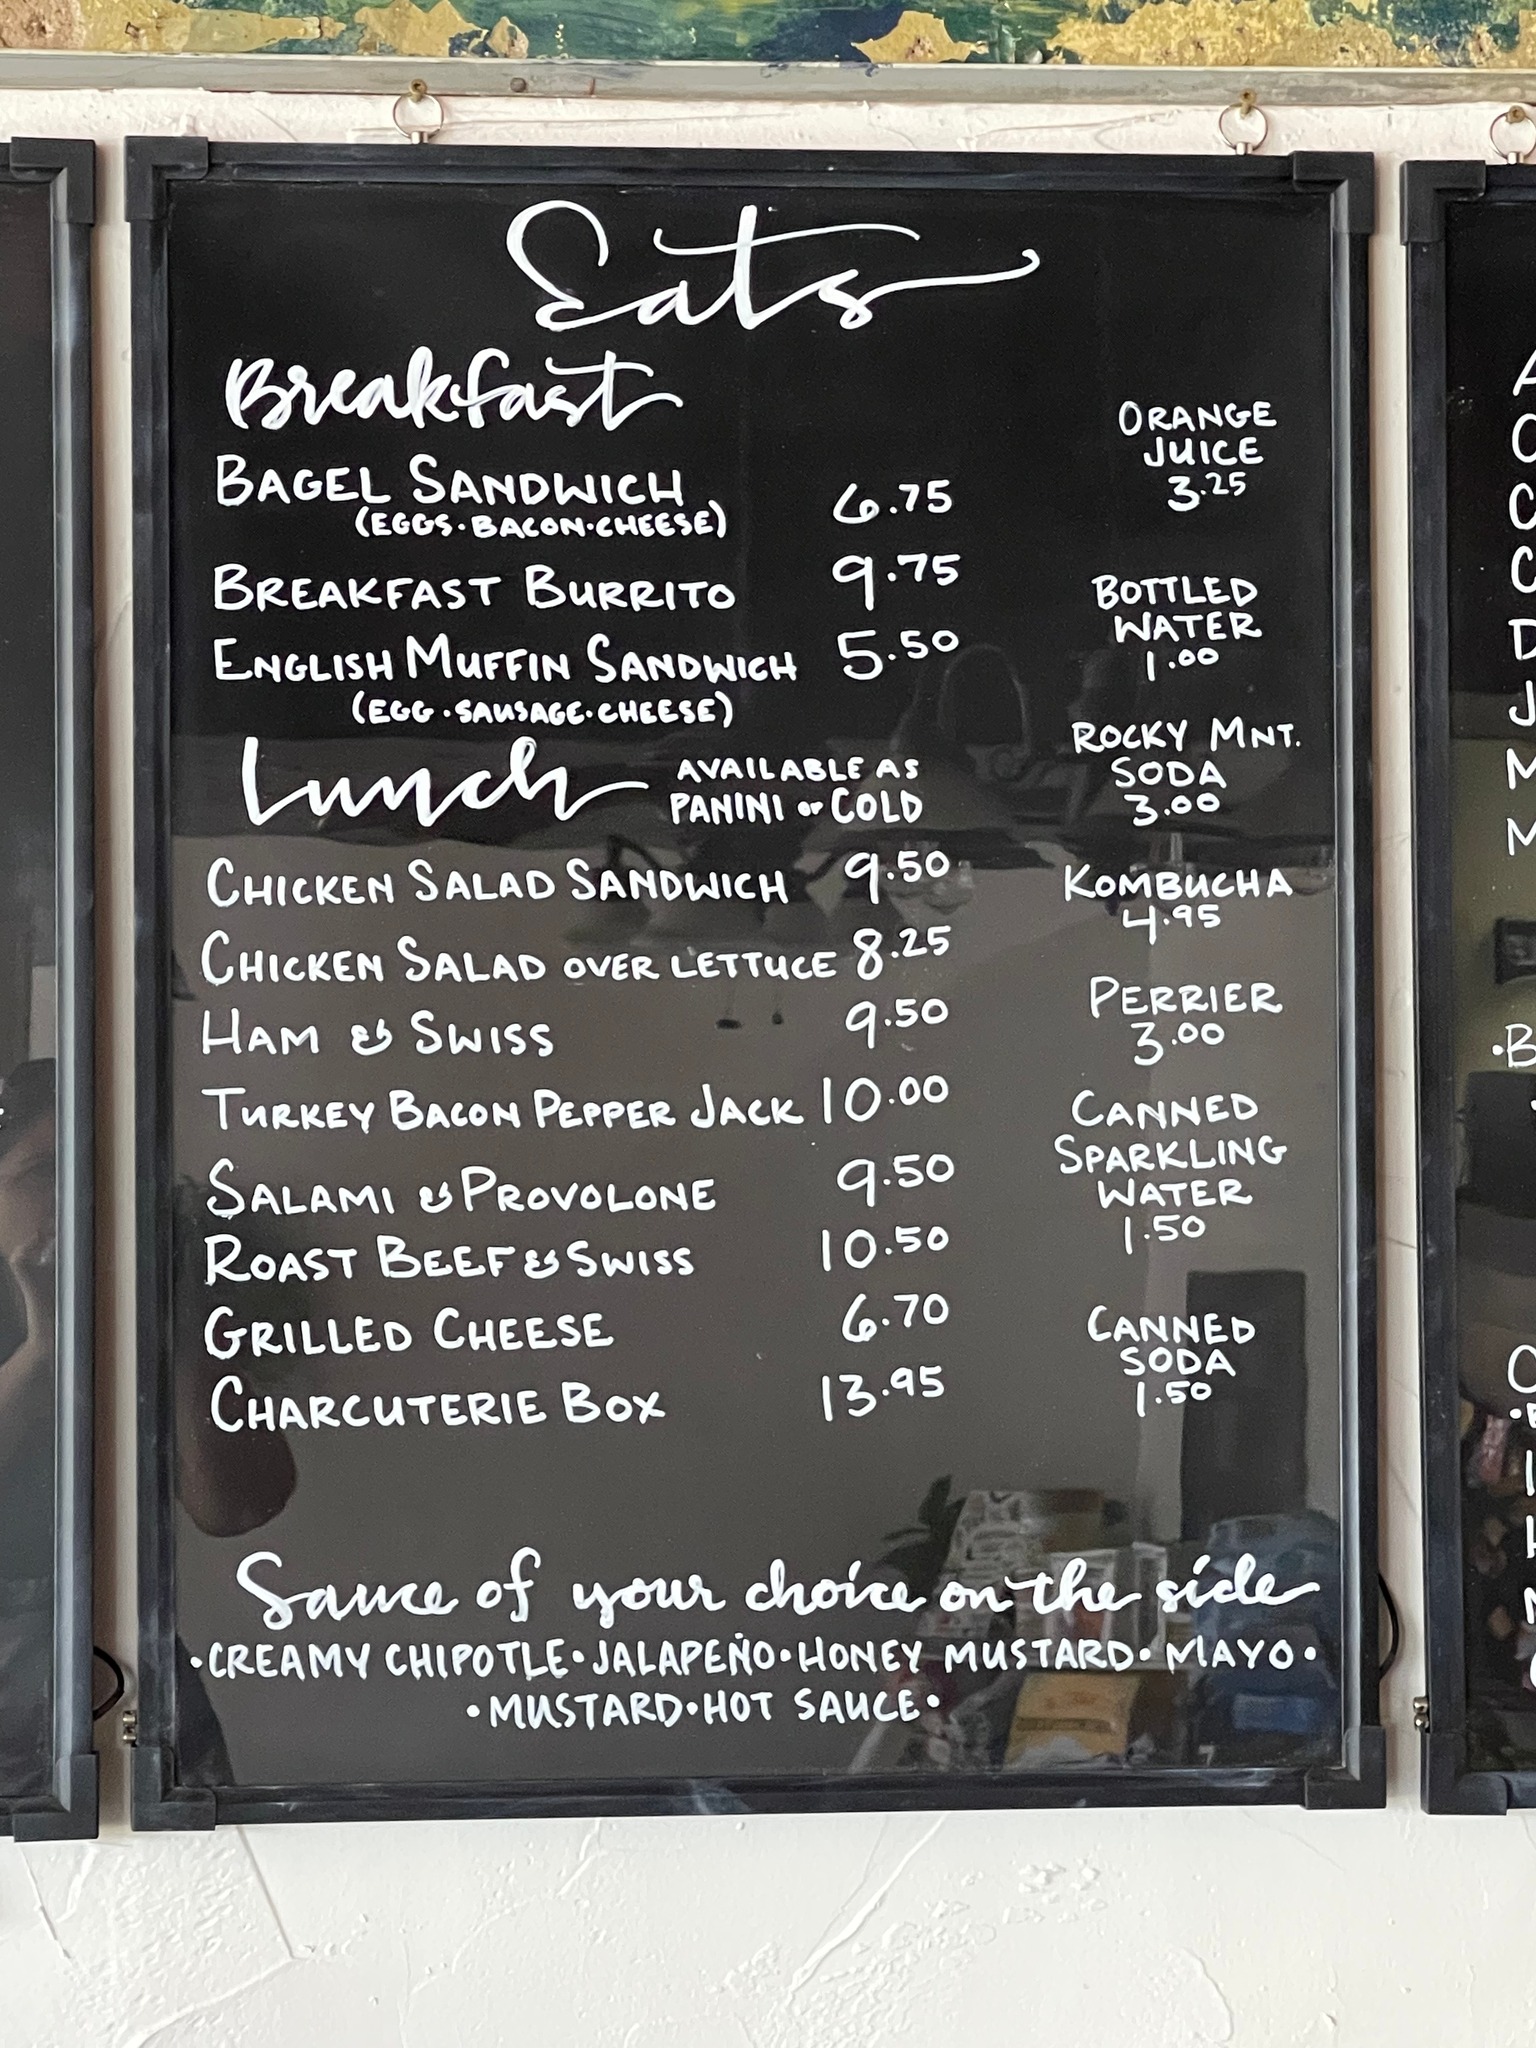 Eats
Breakfast
BAGEL SANDWICH 6.75
(EGGS·BACON·CHEESE)
BREAKFAST BURRITO 9.75
ENGLISH MUFFIN SANDWICH 5.50
(EGG·SAUSAGE·CHEESE)
Lunch
AVAILABLE AS
PANINI or COLD
CHICKEN SALAD SANDWICH 9.50
CHICKEN SALAD OVER LETTUCE 8.25
HAM & SWISS 9.50
TURKEY BACON PEPPER JACK 10.00
SALAMI & PROVOLONE 9.50
ROAST BEEF & SWISS 10.50
GRILLED CHEESE 6.70
CHARCUTERIE BOX 13.95
ORANGE
JUICE
3.25
BOTTLED
WATER
1.00
ROCKY MNT.
SODA
3.00
KOMBUCHA
4.95
PERRIER
3.00
CANNED
SPARKLING
WATER
1.50
CANNED
SODA
1.50
Sauce of your choice on the side
·CREAMY CHIPOTLE·JALAPEÑO·HONEY MUSTARD·MAYO·
·MUSTARD·HOT SAUCE·